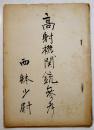 高射機関銃参考
西林少尉